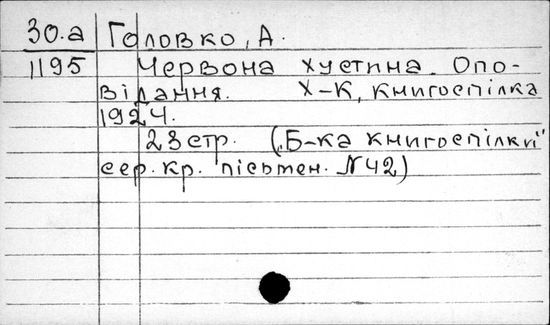 30.а Головко, А.
1195 Червона хустина. Опо-
відання. Х-К, Книгоспілка
1924.
23 стр. („Б-ка книгоспілки"
сер. кр. письмен. N 42)